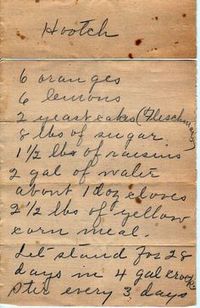 Hootch
6 oranges
6 lemons
2 yeast cakes (Fleischmans)
8 lbs of sugar
1 1/2 lbs of raisins
2 gal of water
about 1 doz cloves
2 1/2 lbs of yellow
corn meal.
Let stand for 28
days in 4 gal crock
stir every 3 days